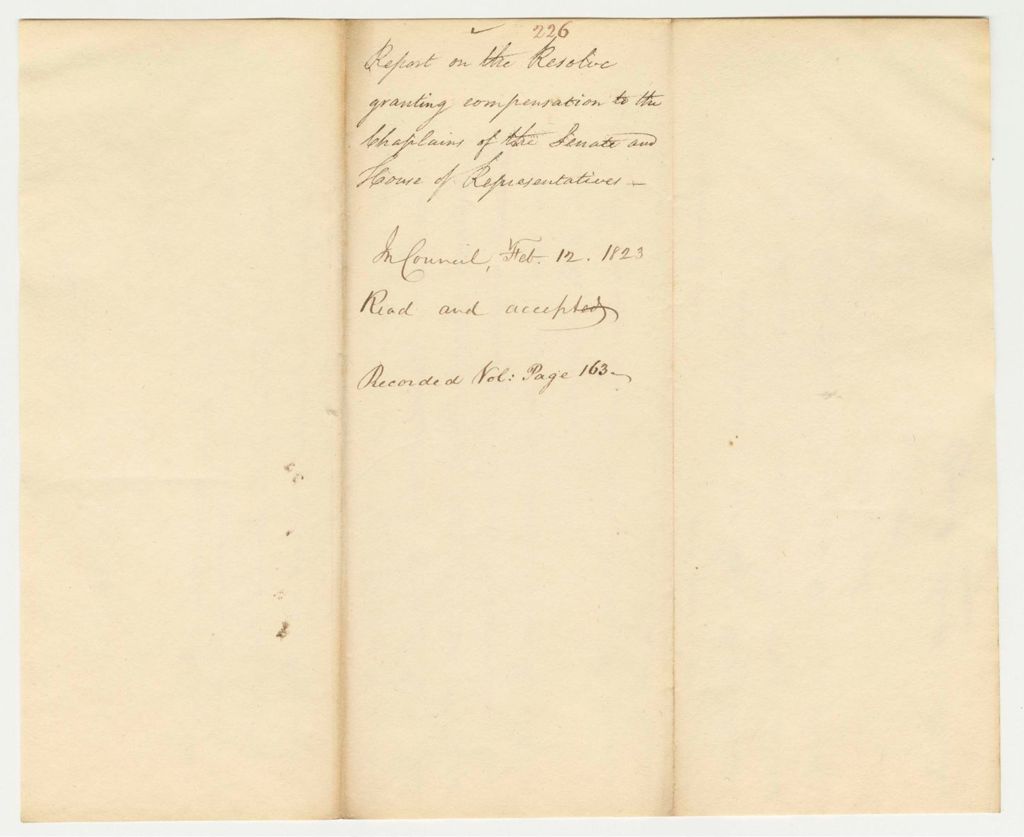 226
Report on the Resolve
granting compensation to the
Chaplains of the Senate and
House of Representatives —
In Council, Feb. 12. 1823
Read and accepted
Recorded Vol: Page 163 —